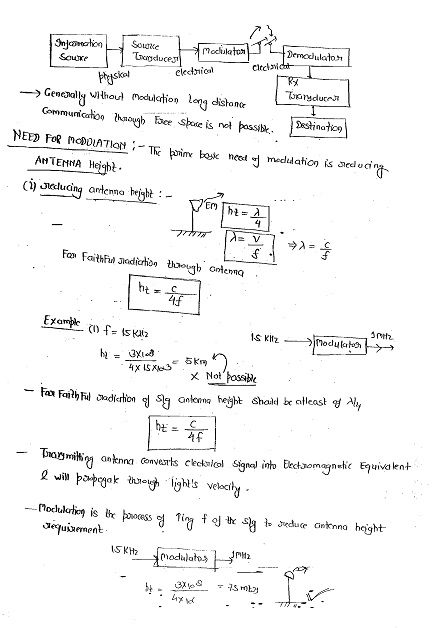 Information Source
Source Transducer
Modulator
Demodulator
physical
electrical
electrical
Rx Transducer
Destination
→ Generally without modulation long distance
communication through free space is not possible.
NEED FOR MODULATION :- The prime basic need of modulation is reducing
ANTENNA Height.
(i) reducing antenna height :-
Em
ht = λ/4
λ = V/f ⇒ λ = c/f
For Faithful radiation through antenna
ht = c/4f
Example (1) f = 15 KHz
15 KHz → Modulator → 1MHz
ht = 3×10^8 / 4×15×10^3 = 5Km
× Not possible
- For Faithful radiation of s/g antenna height should be atleast of λ/4
ht = c/4f
- Transmitting antenna converts electrical signal into Electromagnetic Equivalent
& will propagate through light's velocity.
- Modulation is the process of ↑ing f of the s/g to reduce antenna height
requirement.
15 KHz → Modulator → 1MHz
ht = 3×10^8 / 4×10^6 = 75 mtrs